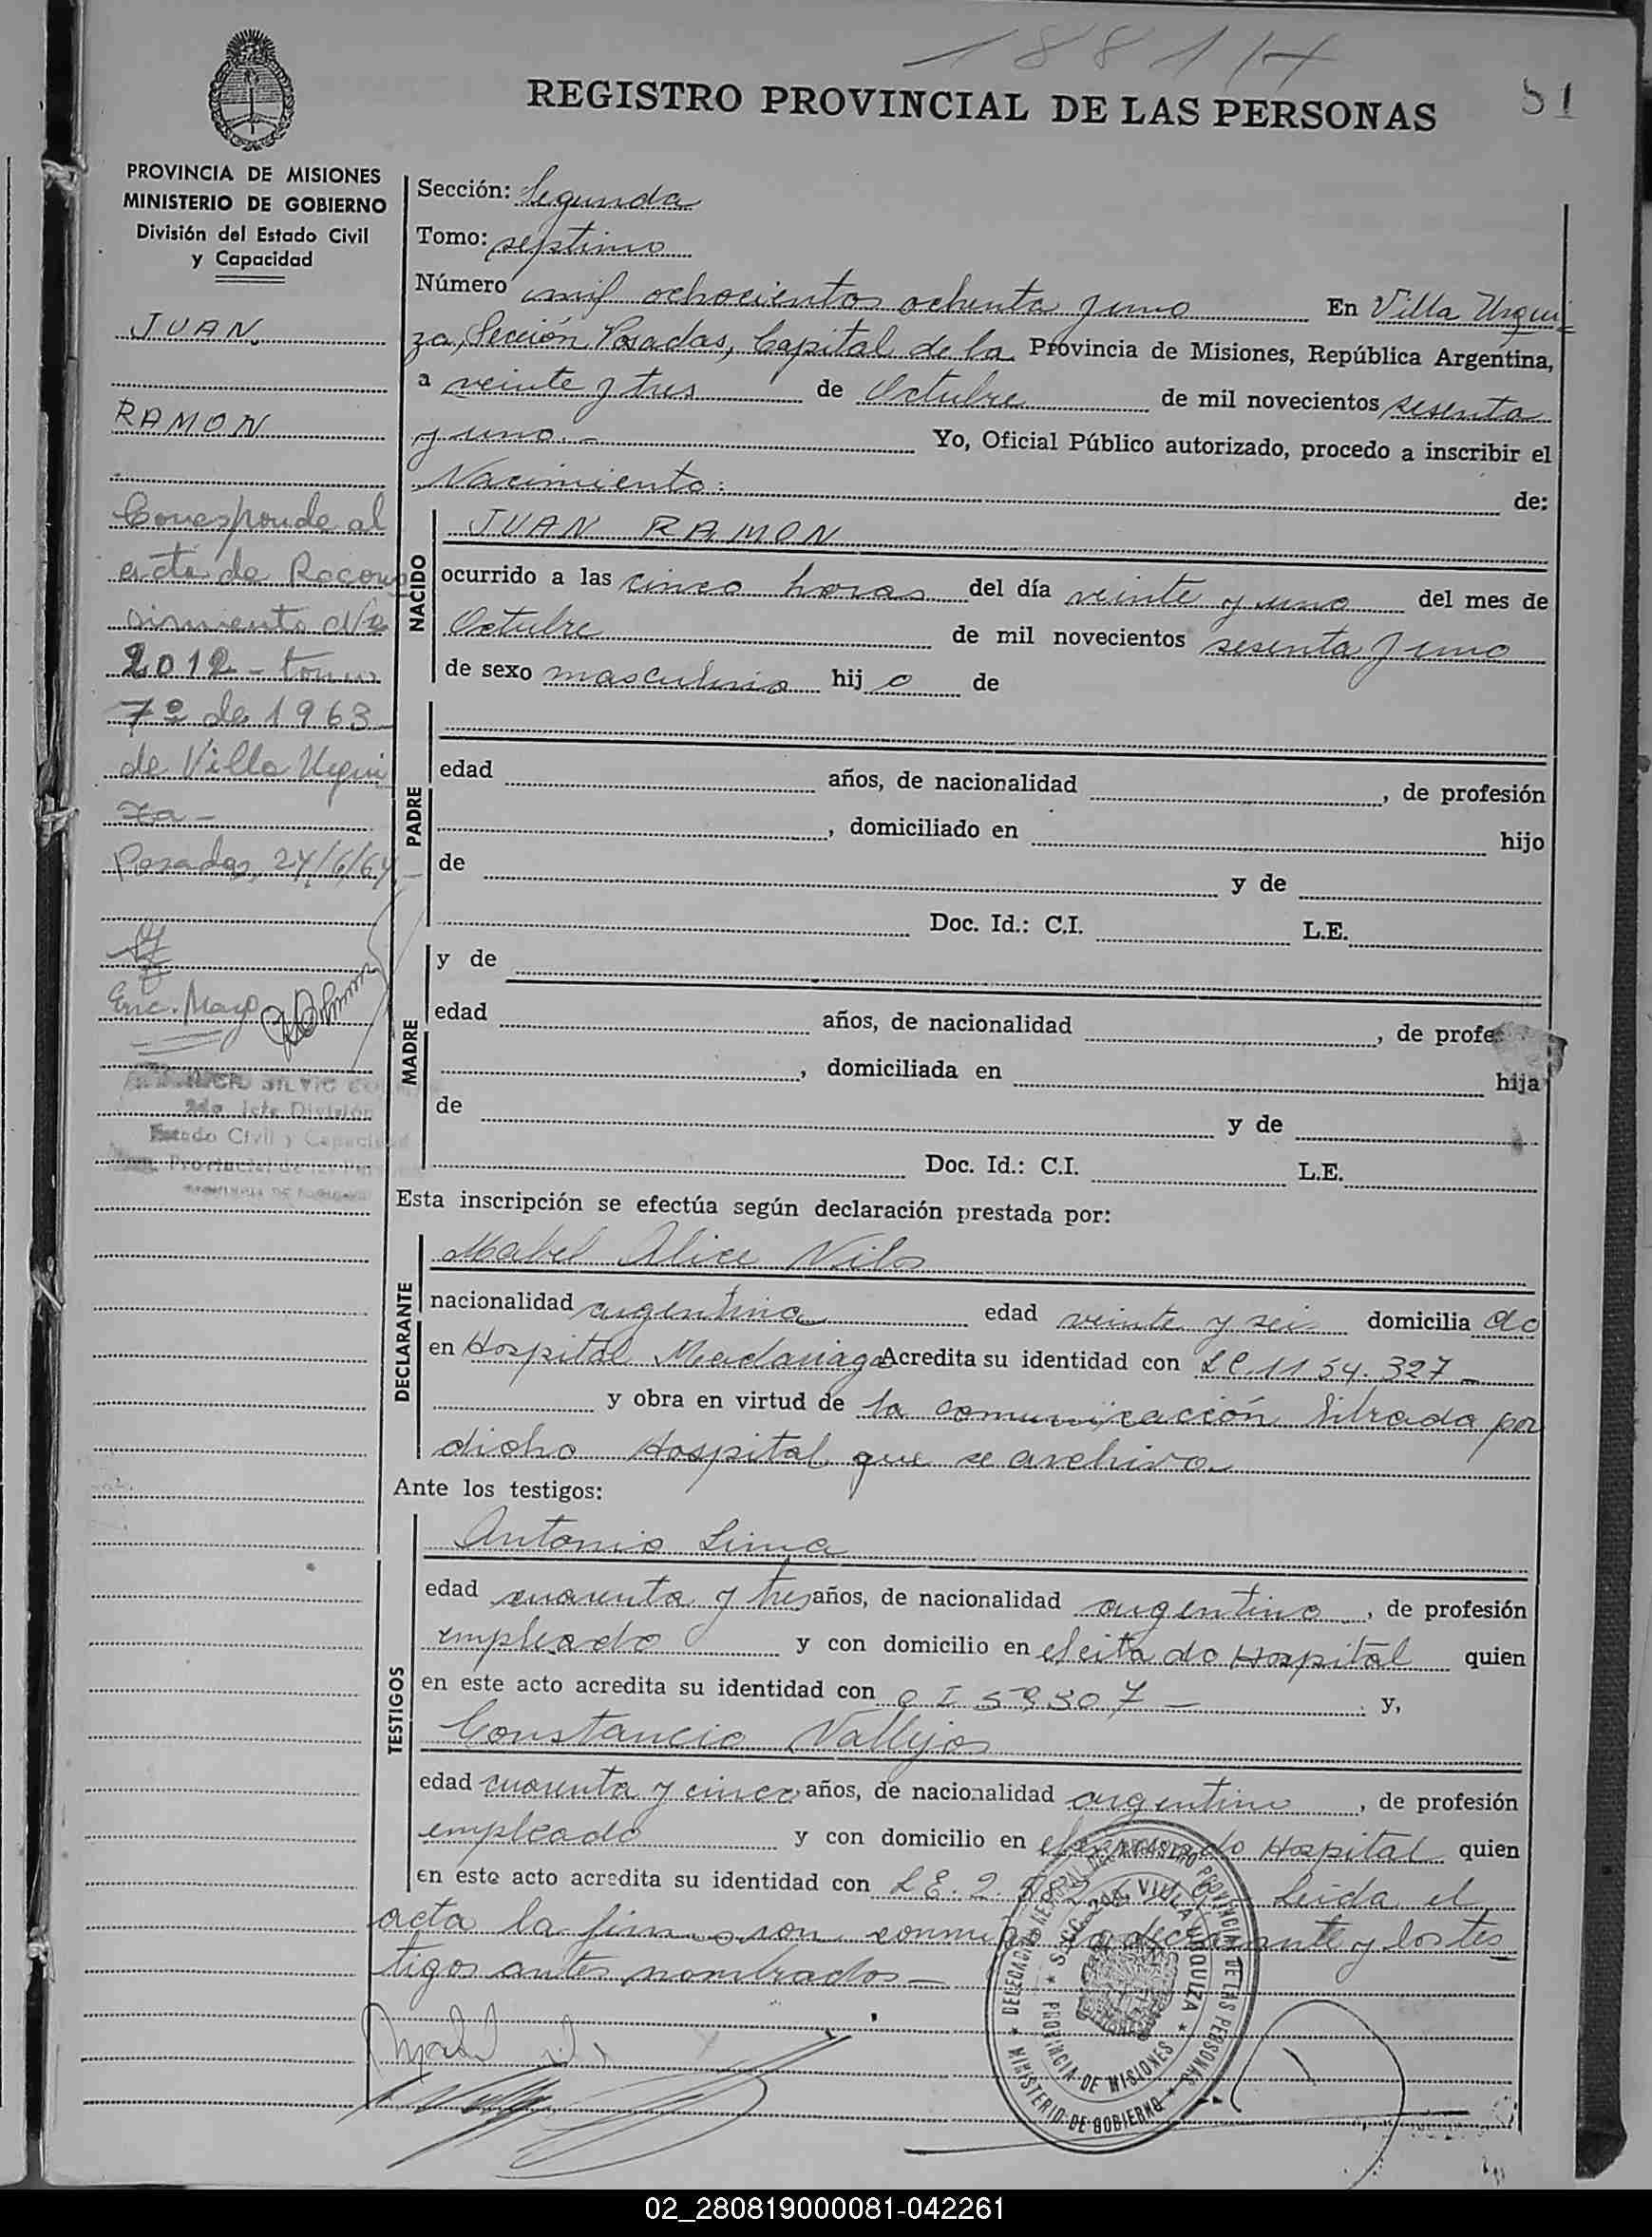 1881/7
81
REGISTRO PROVINCIAL DE LAS PERSONAS
PROVINCIA DE MISIONES
MINISTERIO DE GOBIERNO
División del Estado Civil
y Capacidad
JUAN
RAMON
Corresponde al
acta de Recono
cimiento Nº
2012 - tomo
7º de 1963
de Villa Urqui
za -
Posadas, 24/6/64
Enc. Mayo
2do. Jefe División
Estado Civil y Capacidad
Sección: Segunda
Tomo: septimo
Número mil ochocientos ochenta y uno En Villa Urqui-
za, Sección Posadas, Capital de la Provincia de Misiones, República Argentina,
a veinte y tres de Octubre de mil novecientos sesenta
y uno.- Yo, Oficial Público autorizado, procedo a inscribir el
Nacimiento: de:
NACIDO
JUAN RAMON
ocurrido a las cinco horas del día veinte y uno del mes de
Octubre de mil novecientos sesenta y uno
de sexo masculino hijo de
PADRE
edad años, de nacionalidad , de profesión
, domiciliado en hijo
de y de
Doc. Id.: C.I. L.E.
MADRE
y de
edad años, de nacionalidad , de profes
, domiciliada en hija
de y de
Doc. Id.: C.I. L.E.
Esta inscripción se efectúa según declaración prestada por:
DECLARANTE
Mabel Alice Nils
nacionalidad argentina edad veinte y seis domicilia do
en Hospital Madariaga Acredita su identidad con LC 1154.327 -
y obra en virtud de la comunicación librada por
dicho Hospital que se archiva
Ante los testigos:
TESTIGOS
Antonio Lima
edad cuarenta y tres años, de nacionalidad argentino, de profesión
empleado y con domicilio en el citado Hospital quien
en este acto acredita su identidad con C I 59307 - y,
Constancio Vallejos
edad cuarenta y cinco años, de nacionalidad argentino, de profesión
empleado y con domicilio en el Hospital quien
en este acto acredita su identidad con L.E. 2. Leida el
acta la firmaron conmigo la declarante y los tes
tigos antes nombrados -
DELEGACION REGIONAL DEL REGISTRO PROVINCIAL DE LAS PERSONAS
MINISTERIO DE GOBIERNO
SECC. 2da. VILLA URQUIZA
PROVINCIA DE MISIONES
02_280819000081-042261